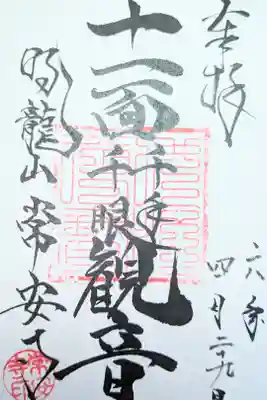 奉拝
六年
四月二十九日
十一面千手
千眼観音
龍山 常安寺
常安
寺印